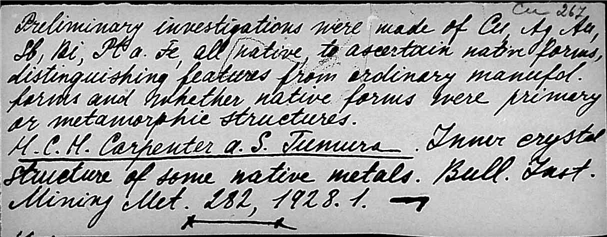 Cu 267
Preliminary investigations were made of Cu, Ag, Au,
Sb, Bi, Pt a. Fe, all native, to ascertain native forms,
distinguishing features from ordinary manufd.
forms and whether native forms were primary
or metamorphic structures.
H. C. H. Carpenter a. S. Tumura. Inner crystal
structure of some native metals. Bull. Inst.
Mining Met. 282, 1928. 1.